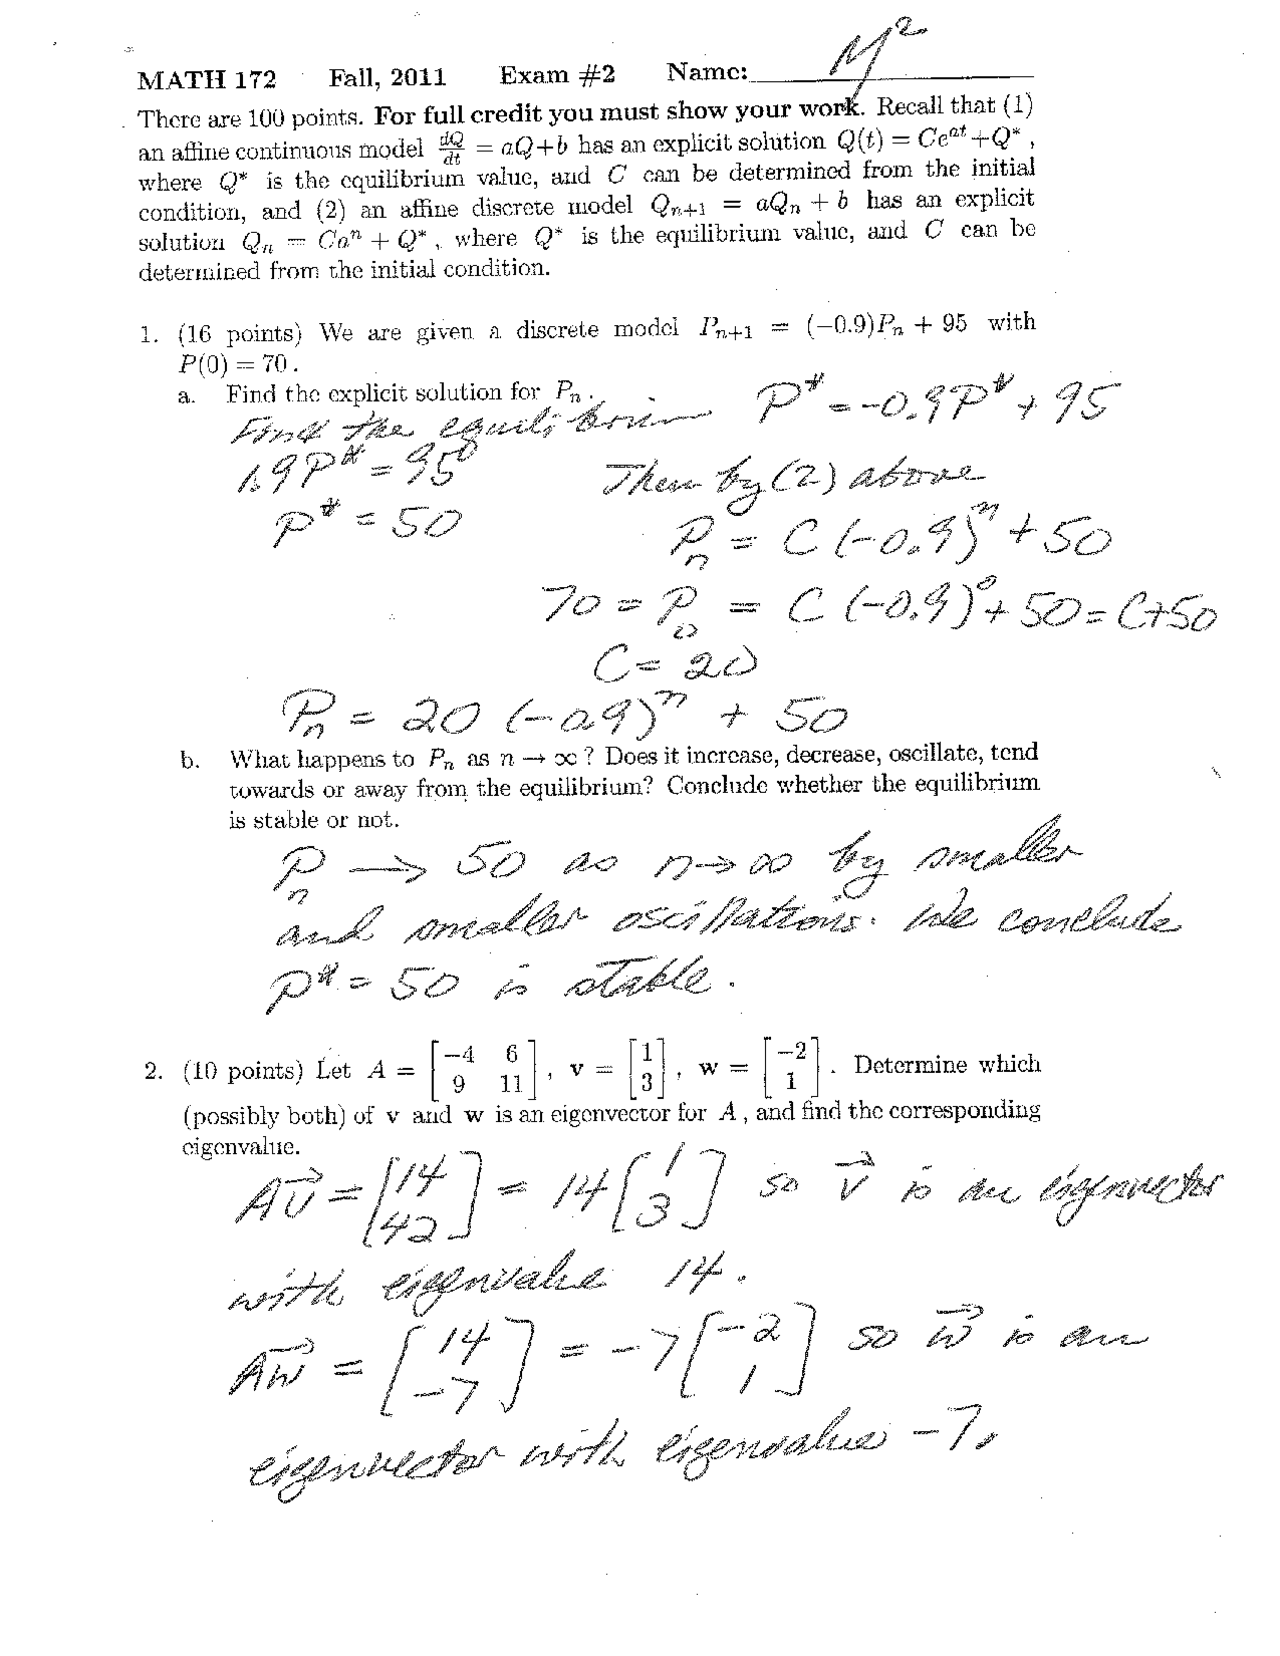 MATH 172 Fall, 2011 Exam #2 Name: M²
There are 100 points. For full credit you must show your work. Recall that (1)
an affine continuous model dQ/dt = aQ+b has an explicit solution Q(t) = Ce^{at}+Q*,
where Q* is the equilibrium value, and C can be determined from the initial
condition, and (2) an affine discrete model Q_{n+1} = aQ_n + b has an explicit
solution Q_n = Ca^n + Q*, where Q* is the equilibrium value, and C can be
determined from the initial condition.
1. (16 points) We are given a discrete model P_{n+1} = (−0.9)P_n + 95 with
P(0) = 70.
a. Find the explicit solution for P_n.
Find the equilibrium P* = -0.9P* + 95
1.9P* = 95
Then by (2) above
P* = 50
P_n = C(-0.9)^n + 50
70 = P_0 = C(-0.9)^0 + 50 = C+50
C = 20
P_n = 20 (-0.9)^n + 50
b. What happens to P_n as n → ∞? Does it increase, decrease, oscillate, tend
towards or away from the equilibrium? Conclude whether the equilibrium
is stable or not.
P_n → 50 as n→∞ by smaller
and smaller oscillations. We conclude
P* = 50 is stable.
2. (10 points) Let A = [−4 6; 9 11], v = [1; 3], w = [−2; 1]. Determine which
(possibly both) of v and w is an eigenvector for A, and find the corresponding
eigenvalue.
Av⃗ = [14; 42] = 14[1; 3] so v⃗ is an eigenvector
with eigenvalue 14.
Aw⃗ = [14; -7] = -7[-2; 1] so w⃗ is an
eigenvector with eigenvalue -7.